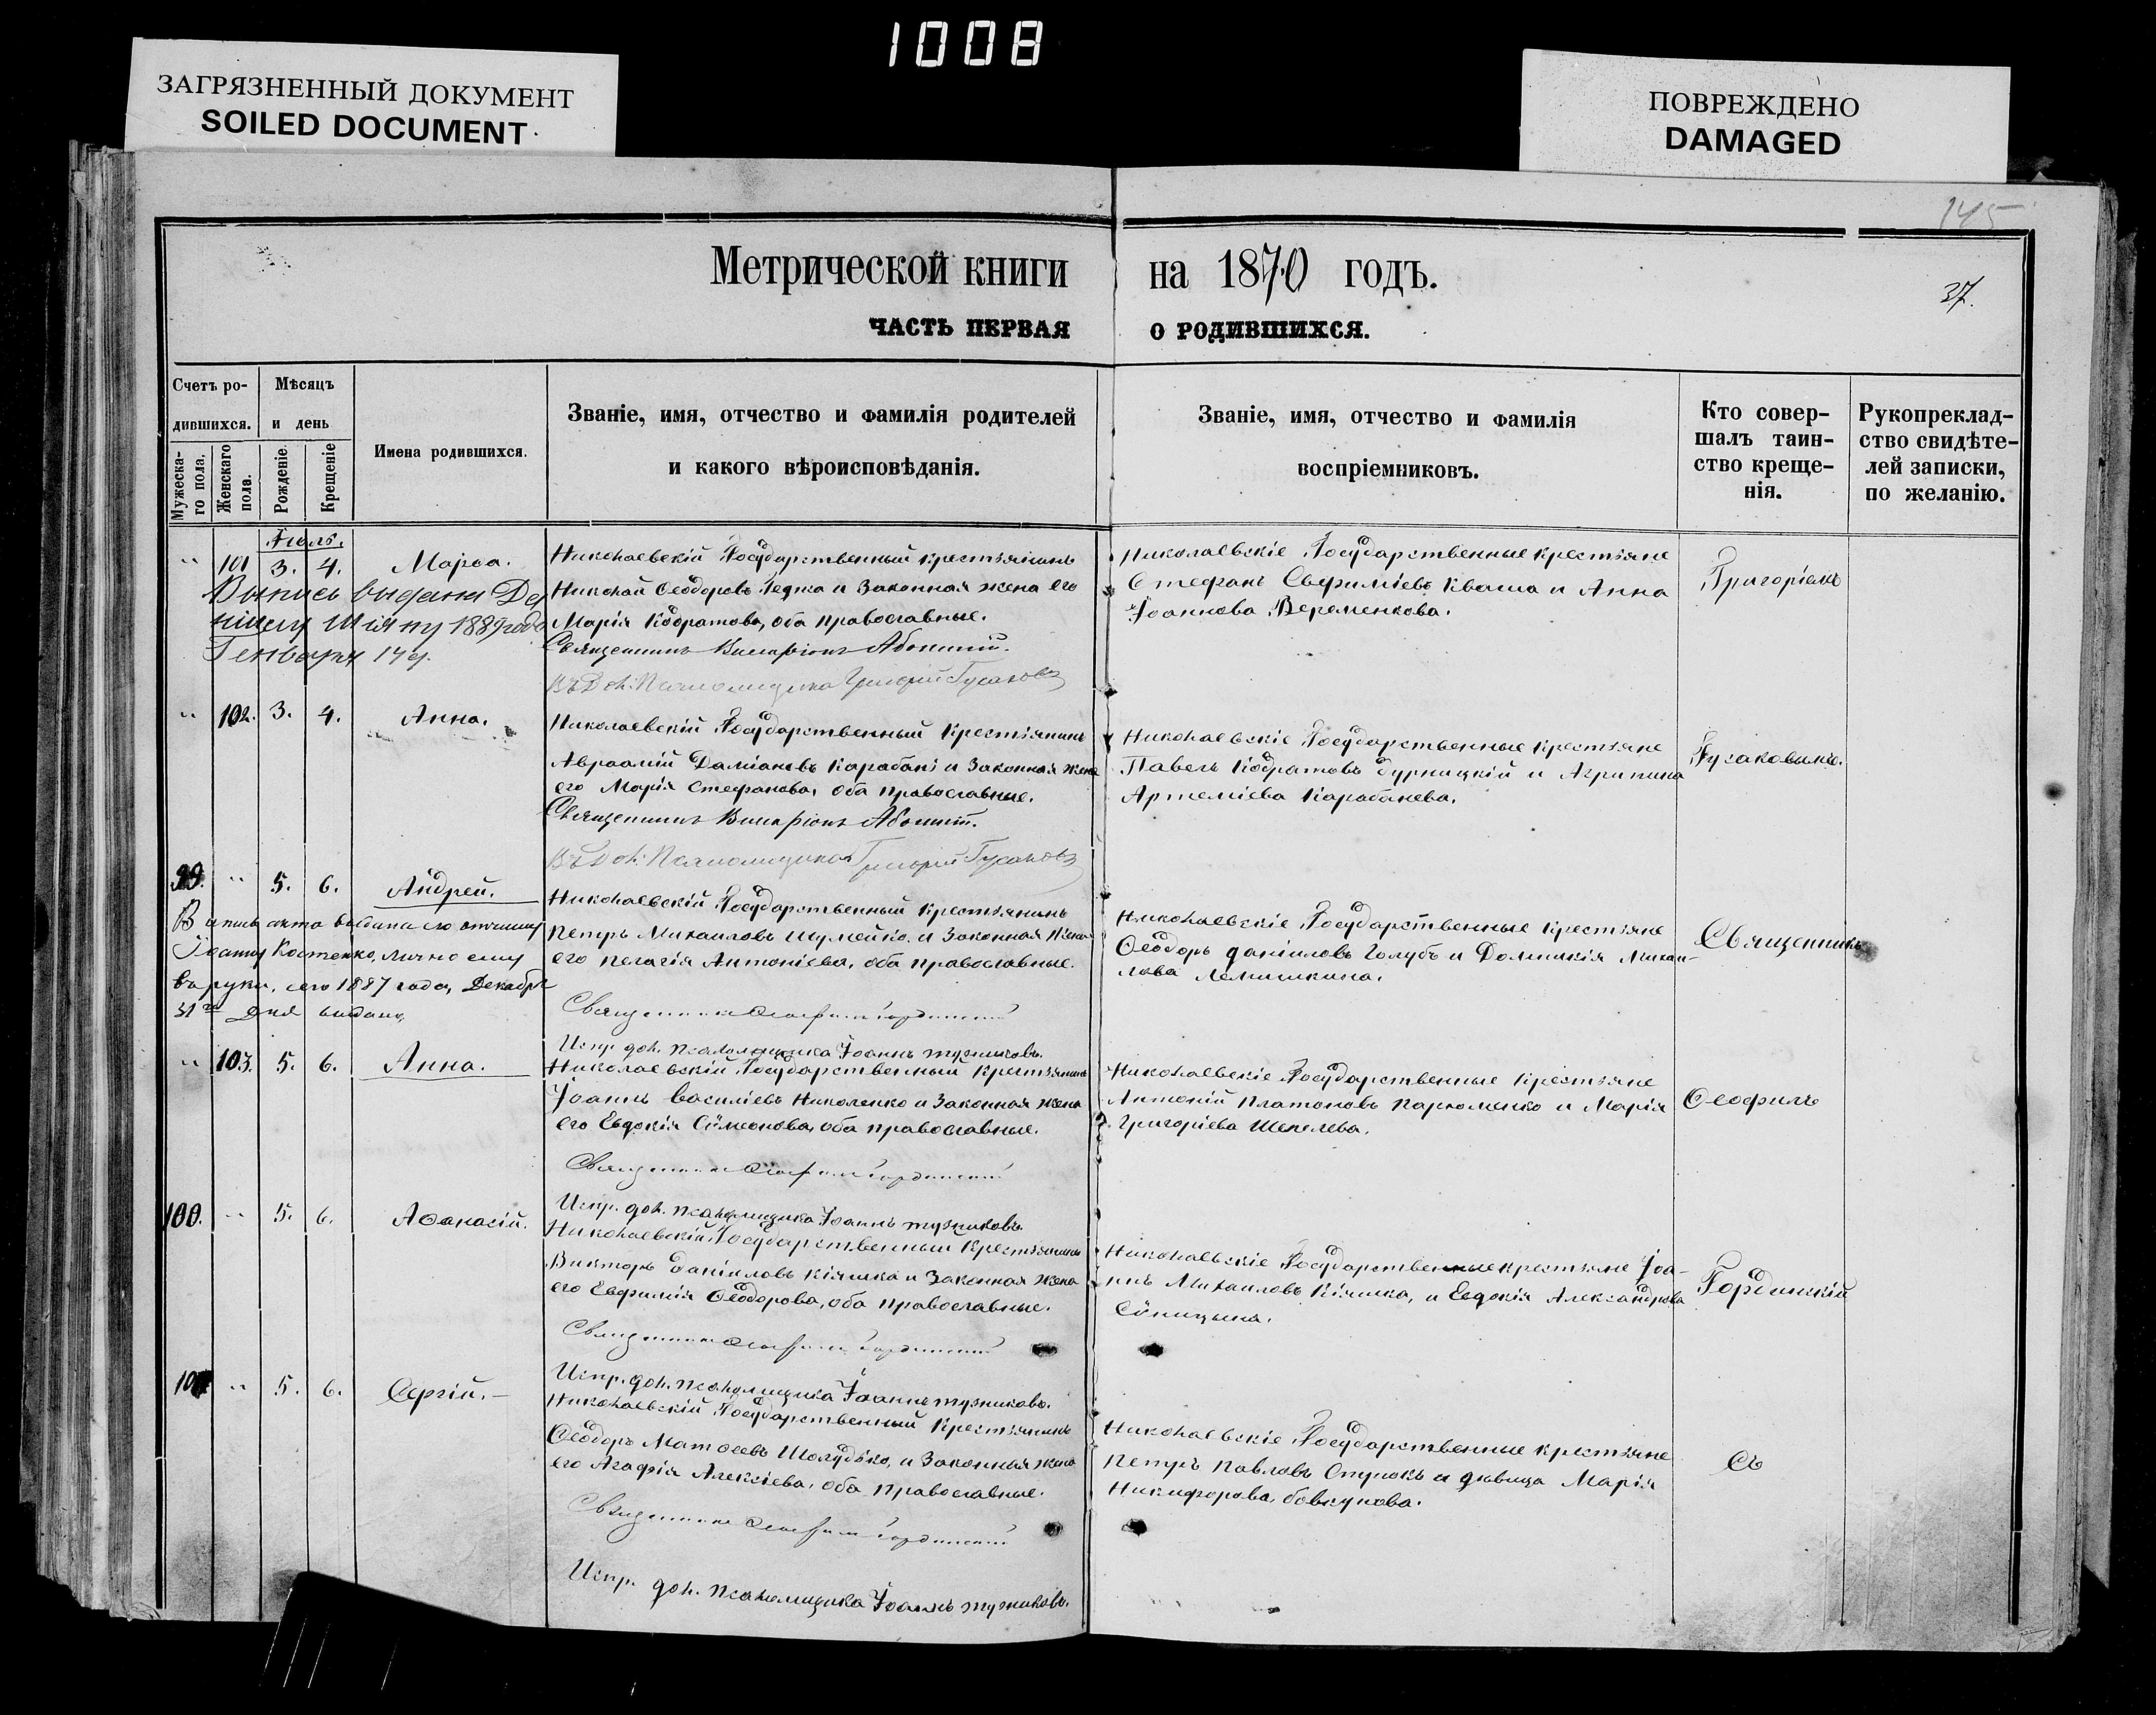 1008
ЗАГРЯЗНЕННЫЙ ДОКУМЕНТ
SOILED DOCUMENT
ПОВРЕЖДЕНО
DAMAGED
145
Метрической книги на 1870 годъ.
37.
ЧАСТЬ ПЕРВАЯ О РОДИВШИХСЯ.
Счетъ ро-
дившихся.
Мужеска-
го пола.
Женскаго
пола.
Мѣсяцъ
и день
Рожденіе.
Крещеніе
Имена родившихся.
Званіе, имя, отчество и фамилія родителей
и какого вѣроисповѣданія.
Званіе, имя, отчество и фамилія
воспріемниковъ.
Кто совер-
шалъ таин-
ство креще-
нія.
Рукопреклад-
ство свидѣте-
лей записки,
по желанію.
Іюль.
" 101 3. 4. Марѳа.
Николаевскій Государственный крестьянинъ
Николай Ѳеодоровъ и Законная жена его
Марія Кодратова, оба православные.
Священникъ
Григорій Гусаковъ
Выпись выдана
1889 года
Генваря 14 д.
Николаевскіе Государственные крестьяне
Стефанъ Евфиміевъ Кваша и Анна
Іоаннова Веременкова.
Григоріемъ
" 102. 3. 4. Анна.
Николаевскій Государственный Крестьянинъ
Авраамій Даміановъ Карабанъ и Законная жена
его Марія Стефанова, оба православные.
Священникъ
Григорій Гусаковъ
Николаевскіе Государственные крестьяне
Павелъ Кодратовъ и Агрипина
Артеміева Карабанева.
Гусаковымъ.
99. " 5. 6. Андрей.
Николаевскій Государственный Крестьянинъ
Петръ Михаиловъ Шумейко и Законная жена
его Пелагія Антоніева, оба православные.
Священникъ
Испр. дол. псаломщика Іоаннъ
акта выдана его отчиму
Іоанну Костенко, лично ему
въ руки, сего 1887 года, Декабря
31го дня выдано,
Николаевскіе Государственные крестьяне
Ѳеодоръ Даніиловъ Голубъ и Домникія Михаи-
лова
Священникъ
" 103. 5. 6. Анна.
Николаевскій Государственный Крестьянинъ
Іоаннъ Василіевъ Николенко и Законная жена
его Евдокія Сѵмеонова, оба православные.
Священникъ
Испр. дол. псаломщика Іоаннъ
Николаевскіе Государственные крестьяне
Антоній Платоновъ Пархоменко и Марія
Григоріева Шепелева.
Ѳеофилъ
100. " 5. 6. Аѳанасій.
Николаевскій Государственный Крестьянинъ
Викторъ Даніиловъ Кіяшка и Законная жена
его Евфимія Ѳеодорова, оба православные.
Священникъ
Испр. дол. псаломщика Іоаннъ
Николаевскіе Государственные крестьяне Іоа-
ннъ Михаиловъ Кіяшка, и Евдокія Александрова
Сѵницына.
Гординскій
101 " 5. 6. Сергій.
Николаевскій Государственный Крестьянинъ
Ѳеодоръ Матѳеевъ Шолудько, и Законная жена
его Агафія Алексіева, оба православные.
Священникъ
Испр. дол. псаломщика Іоаннъ
Николаевскіе Государственные крестьяне
Петръ Павловъ и дѣвица Марія
Никифорова Бовкунова.
Съ